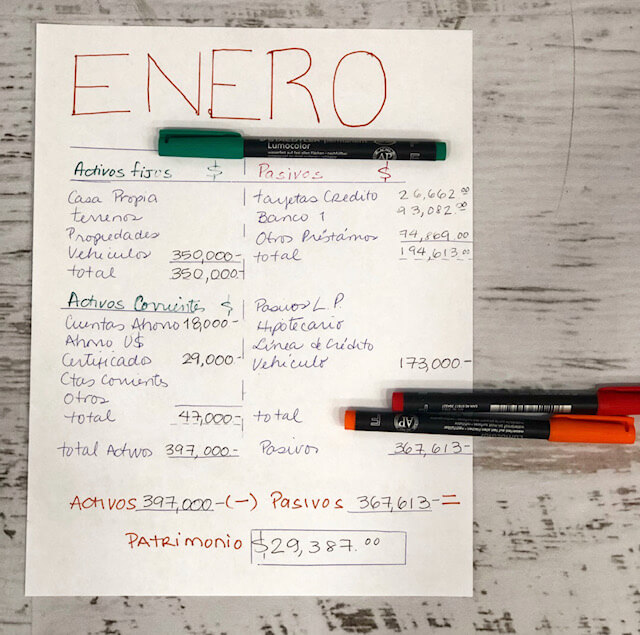 ENERO
Lumocolor
AP
Activos fijos $ Pasivos $
Casa Propia tarjetas Credito 26,662.00
terrenos Banco 1 93,082.00
Propiedades Otros Préstamos 74,869.00
Vehiculos 350,000- total 194,613.00
total 350,000-
Activos Corrientes $ Pasivos L.P.
Cuentas Ahorro 18,000- Hipotecario
Ahorro U$ Línea de Crédito
Certificados 29,000- Vehículo 173,000-
Ctas Corrientes
Otros
total 47,000- total
AP F
total Activos 397,000- Pasivos 367,613-
Activos 397,000-(-) Pasivos 367,613- =
PATRIMONIO $29,387.00